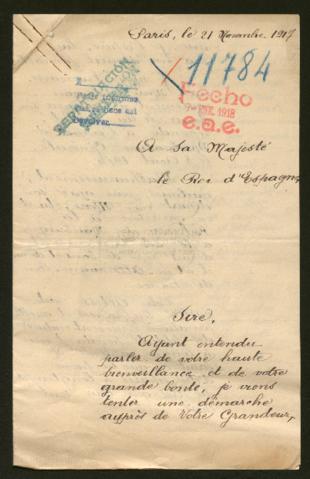 Paris, le 21 Novembre 1917
11784
Fecho
7 ENE. 1918
e.a.e.
devolver.
A Sa Majesté
le Roi d'Espagne
Sire,
Ayant entendu
parler de votre haute
bienveillance et de votre
grande bonté, je viens
tenter une démarche
auprès de Votre Grandeur,